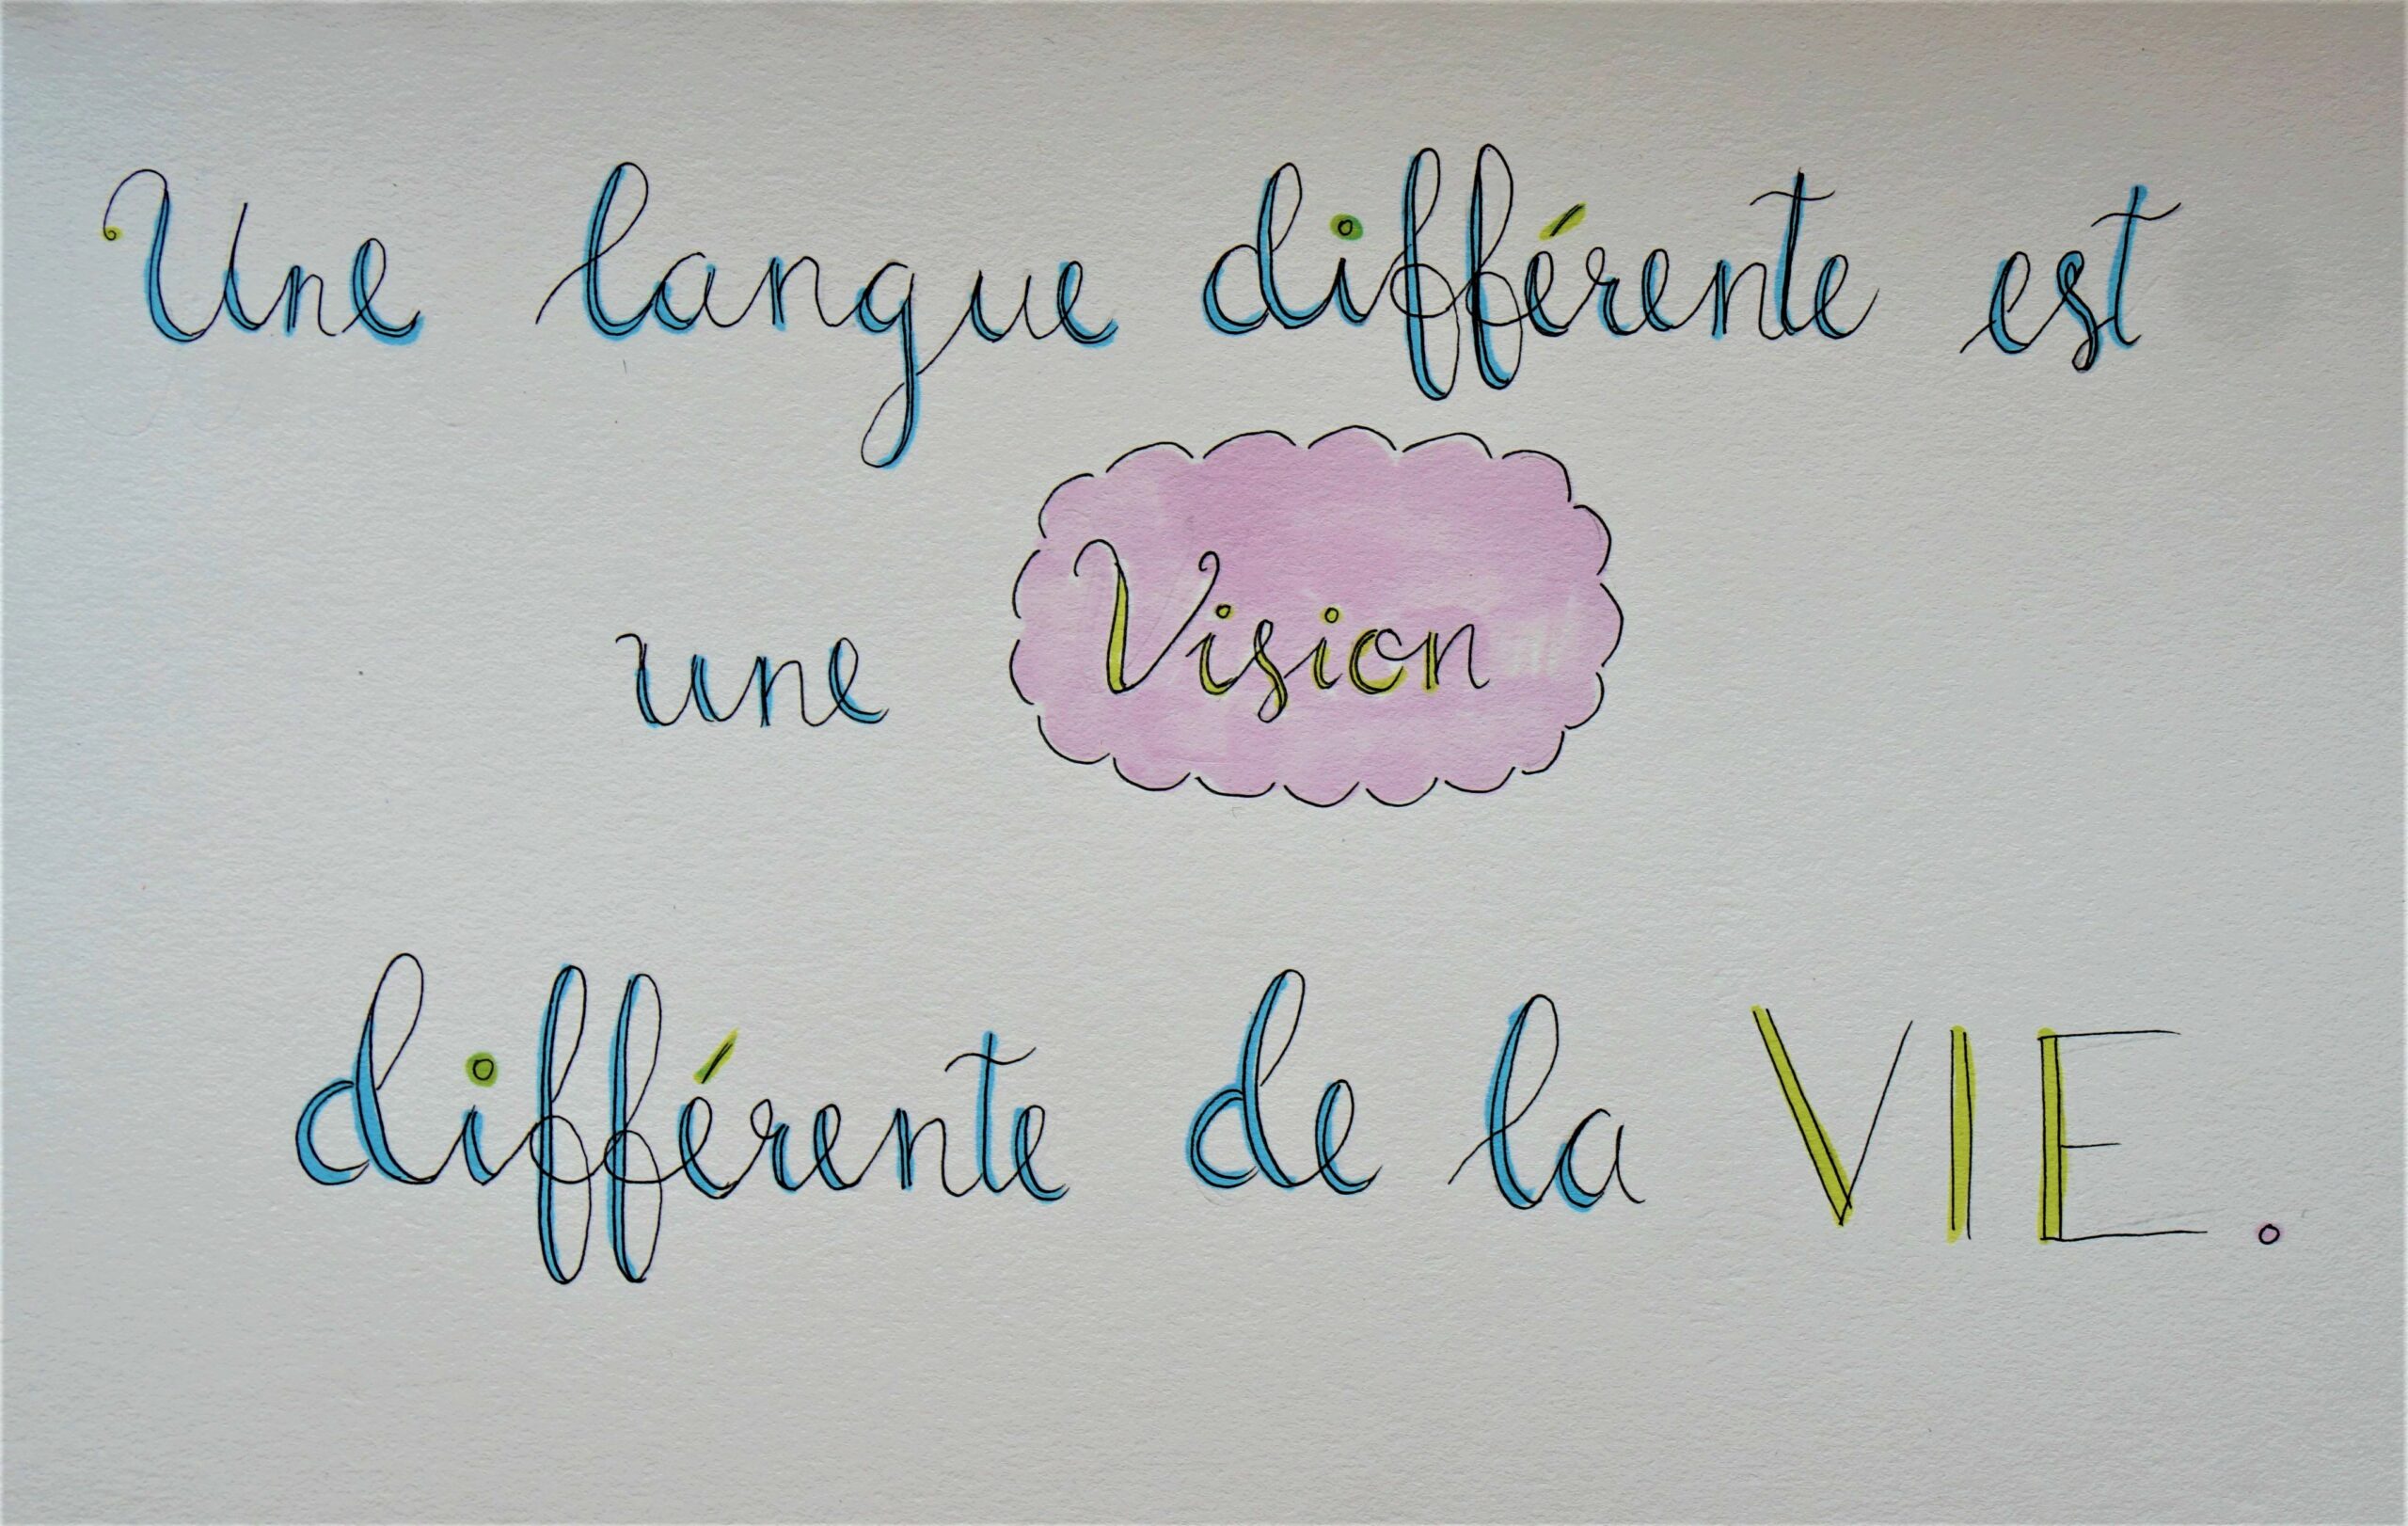 Une langue différente est
une Vision
différente de la VIE.